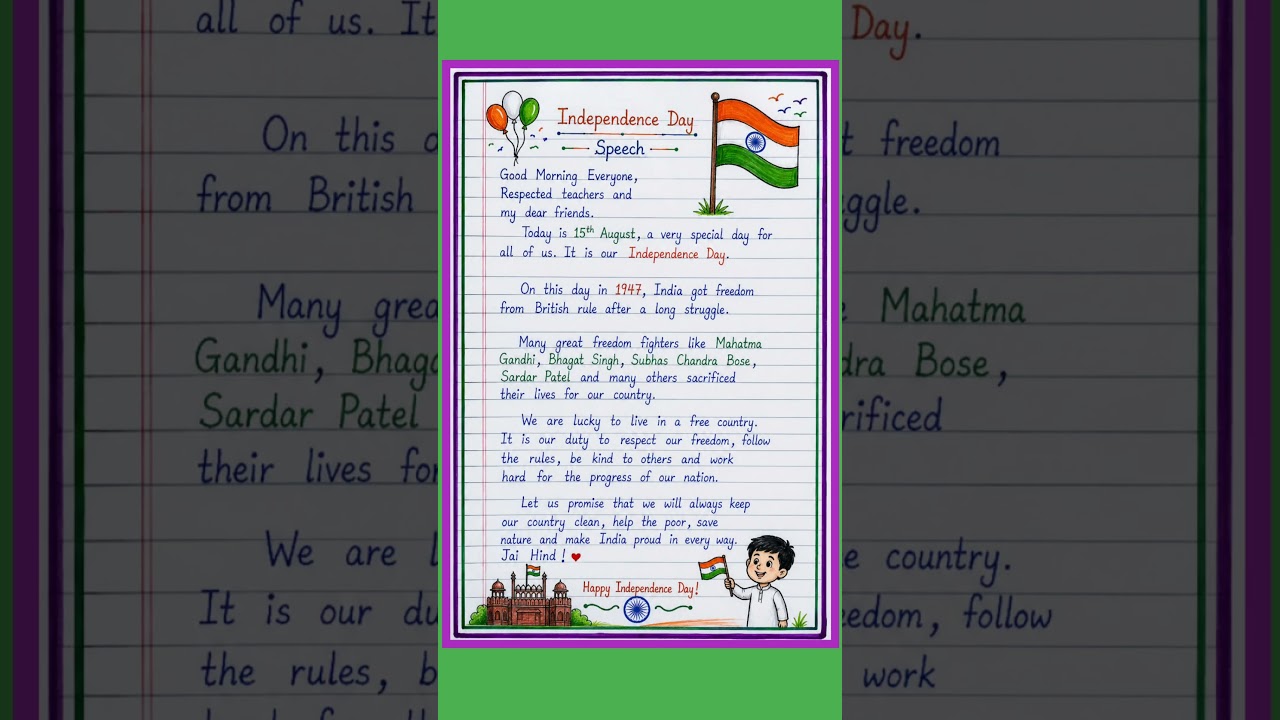 Independence Day
Speech
Good Morning Everyone,
Respected teachers and
my dear friends.
Today is 15th August, a very special day for
all of us. It is our Independence Day.
On this day in 1947, India got freedom
from British rule after a long struggle.
Many great freedom fighters like Mahatma
Gandhi, Bhagat Singh, Subhas Chandra Bose,
Sardar Patel and many others sacrificed
their lives for our country.
We are lucky to live in a free country.
It is our duty to respect our freedom, follow
the rules, be kind to others and work
hard for the progress of our nation.
Let us promise that we will always keep
our country clean, help the poor, save
nature and make India proud in every way.
Jai Hind!
Happy Independence Day!